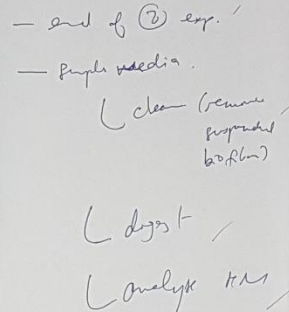 - end of ② exp.
- sample media.
clean (remove
suspended
biofilm)
digest
analyse HM